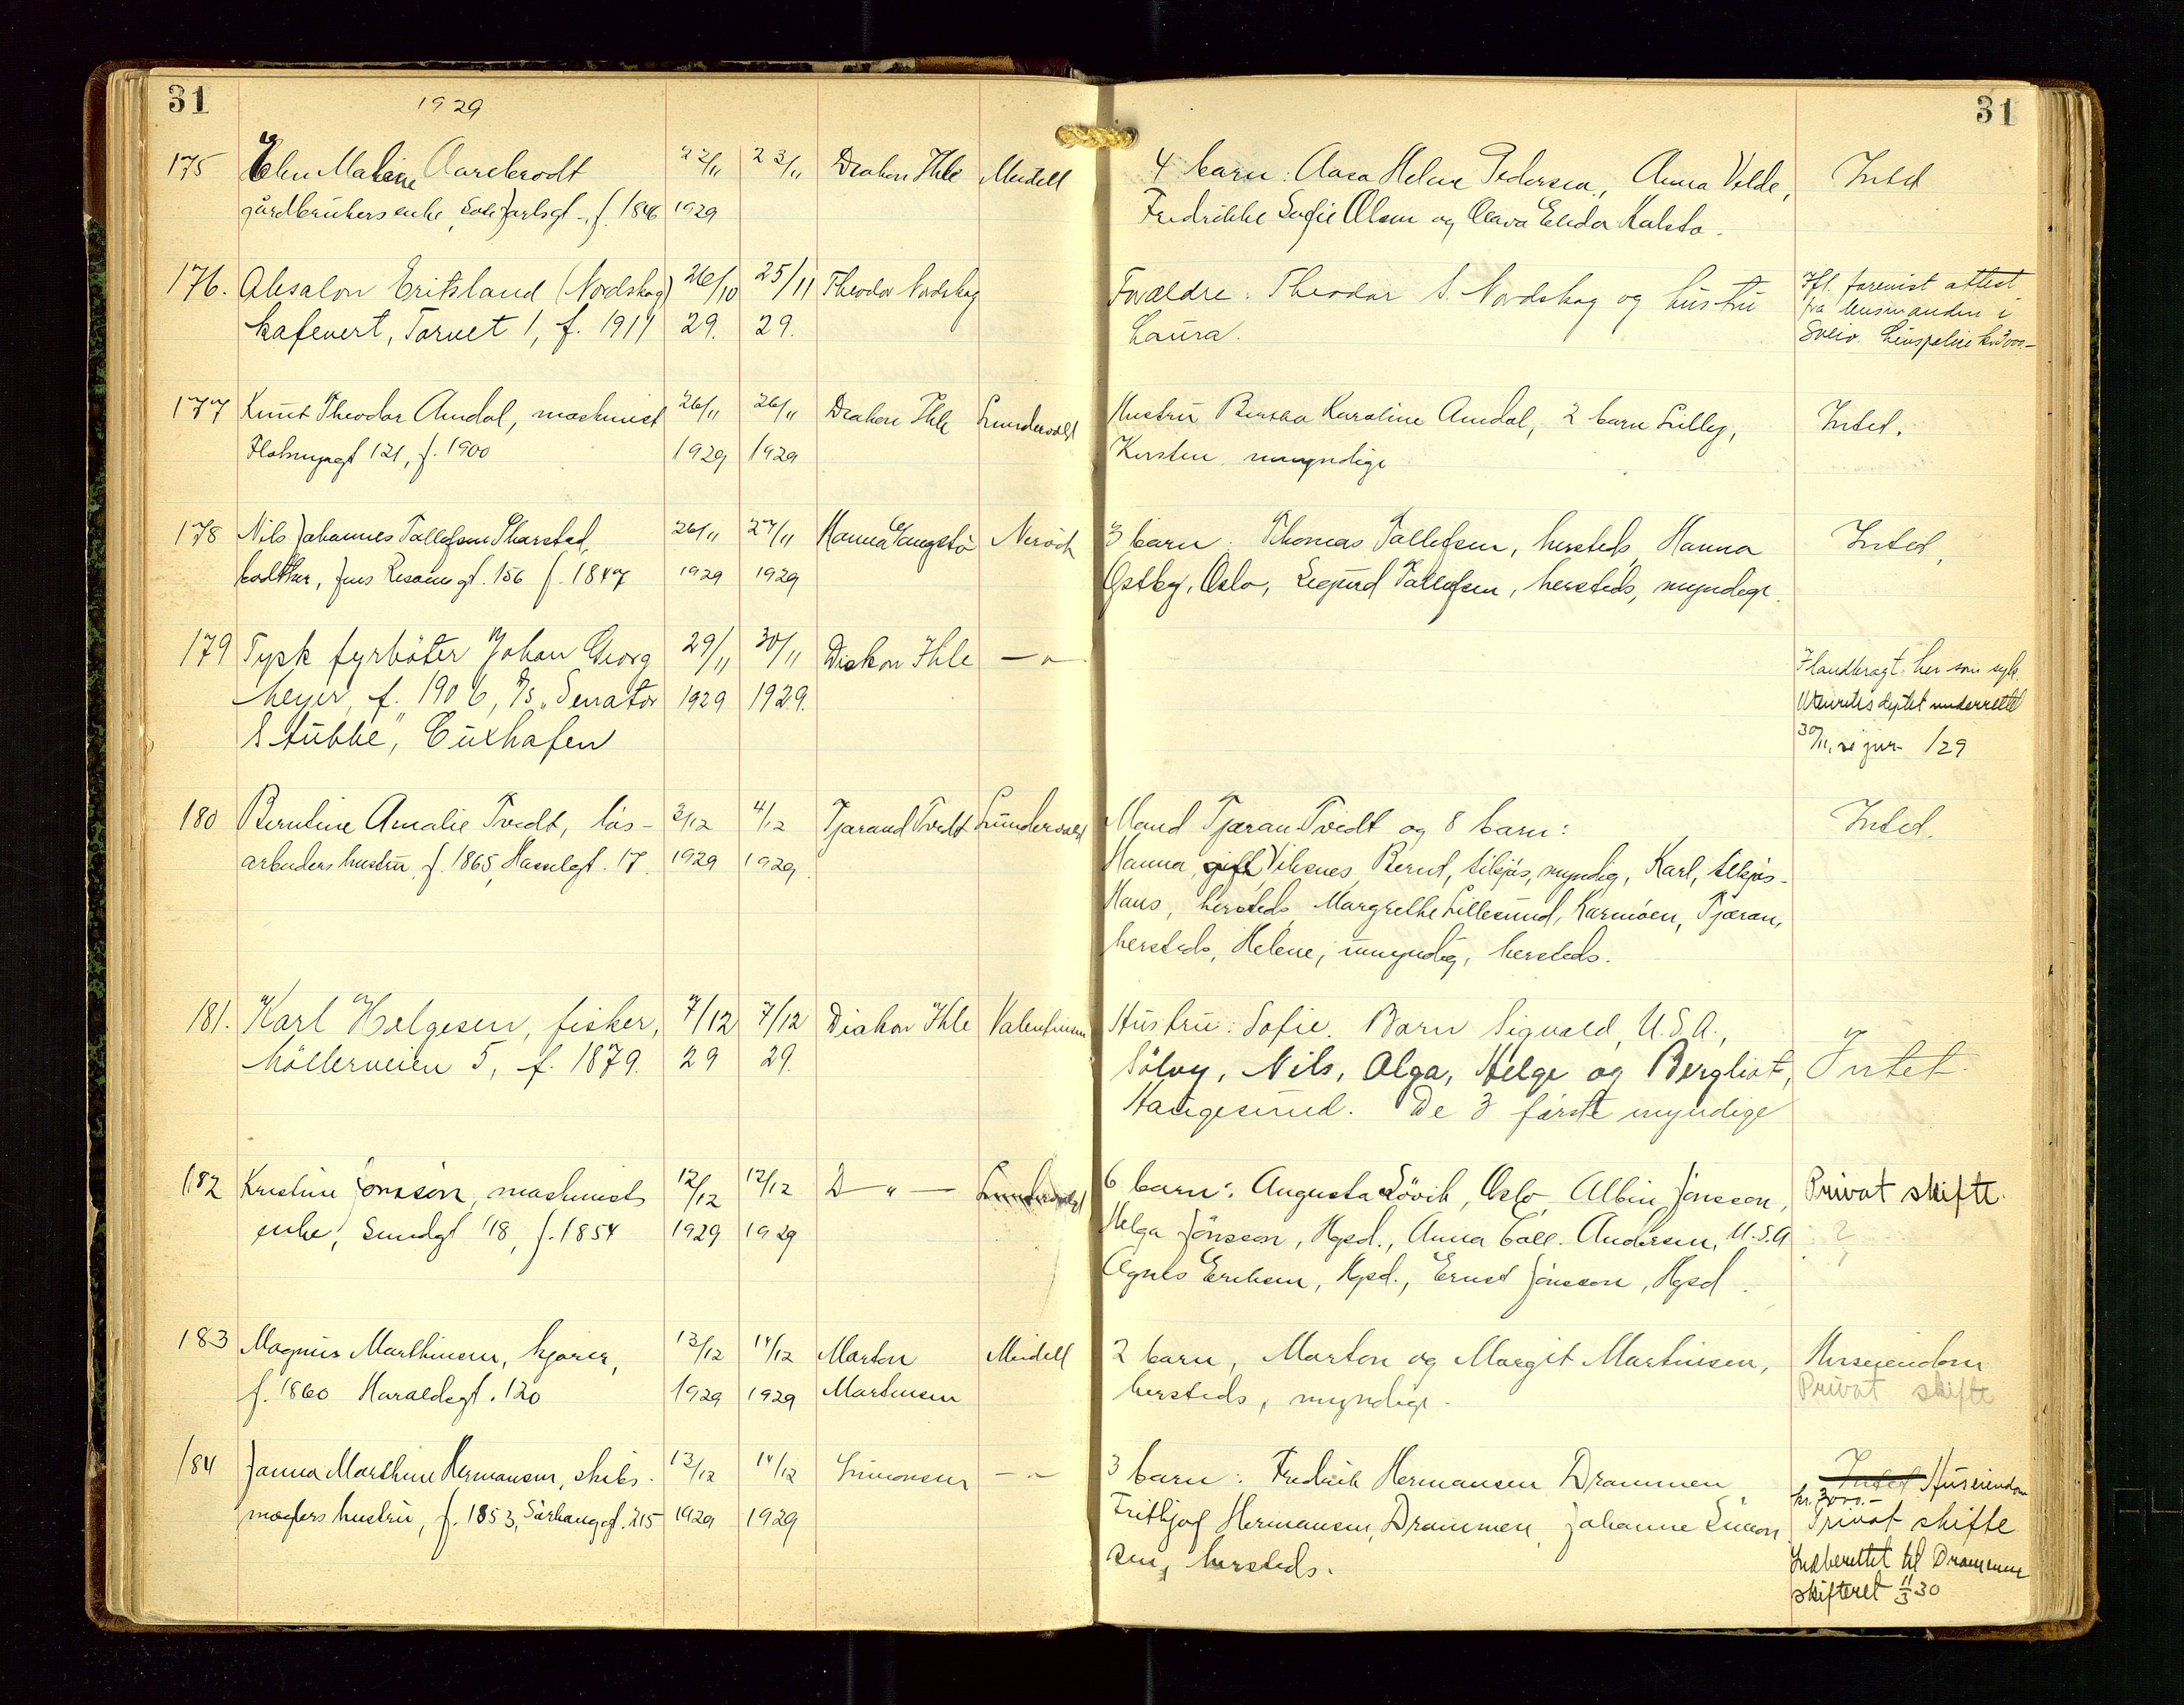 31
1929
31
175 Elen Maline Aarebrodt 22/11 23/11 Diakon Ihle Meidell 4 barn: Aasa Helene Pedersen, Anna Velde, Intet
gårdbrukers enke, Jarlsgt., f. 1846 1929 Fredrikke Sofie Olsen og Elida Kalstø.
176. Absalon Eritsland (Nordskog) 26/10 25/11 Theodor Nordskog Forældre: Theodor S. Nordskog og hustru Ifl. forevist attest
kafevert, Torvet 1, f. 1911 29. 29. Laura. fra lensmanden i
Sveio. Livspolice kr. 300.-
177 Knut Theodor Amdal, maskinist 26/11 26/11 Diakon Ihle Lundevold Hustru Karoline Amdal, 2 barn Lilly, Intet.
Flotmyrgt 121, f. 1900 1929 1929 Kirsten umyndige
178 Nils Johannes Tollefsen 26/11 27/11 Hanna Nervik 3 barn: Thomas Tollefsen, hersteds, Hanna Intet.
Jens Risøensgt. 156 f. 1847 1929 1929 Østby, Oslo, Sigurd Tollefsen, hersteds, myndige.
179 Tysk fyrböter Johan Georg 29/11 30/11 Diakon Ihle — " — Ilandbragt her som syk.
Meyer, f. 1906, S/S "Senator 1929 1929. Utenriksdeptet underrettet
Stubbe", Cuxhafen 30/11, se jur. /29
180 Berntine Amalie Tvedt, løs- 3/12 4/12 Tjærand Tvedt Lundevold Mand Tjæran Tvedt og 8 barn: Intet.
arbeiders hustru, f. 1865, Hasselgt. 17. 1929 1929 Hanna, gift Viksnes, Bernt, tilsjøs, myndig, Karl, tilsjøs-
Hans, hersteds, Margrethe Lillesund, Karmöen, Tjæran,
hersteds, Helene, umyndig, hersteds.
181. Karl Helgesen, fisker, 7/12 7/12 Diakon Ihle Valentinsen Hustru: Sofie. Barn Sigvald, U.S.A.,
Möllerveien 5, f. 1879. 29 29. Sölvy, Nils, Olga, Helge og Bergliot, Intet.
Haugesund. De 3 første myndige
182 Kristine Jönsson, maskinists 12/12 12/12 D — " — Lundevold 6 barn: Augusta Lövik, Oslo, Albin Jönsson, Privat skifte.
enke, Sundgt 18, f. 1854 1929 1929 Helga Jönsson, Hgsd., Anna Andersen, U.S.A ?
Agnes Eriksen, Hgsd., Ernst Jönsson, Hgsd.
183 Magnus Marthinsen, kjører, 13/12 14/12 Morton Meidell 2 barn, Morton og Margit Martinsen, Huseiendom
f. 1860 Haraldsgt. 120 1929 1929 Martinsen hersteds, myndige. Privat skifte
184 Janna Marthine Hermansen, skibs- 13/12 14/12 Simonsen — " — 3 barn: Fredrik Hermansen Drammen Intet Huseiendom
kr. 3000.-
mæglers hustru, f. 1853, Sørhauggt. 215 1929 1929 Fritjof Hermansen, Drammen, Johanne Simon Privat skifte
sen, hersteds. Indberettet til Drammen
skifteret 11/3 30